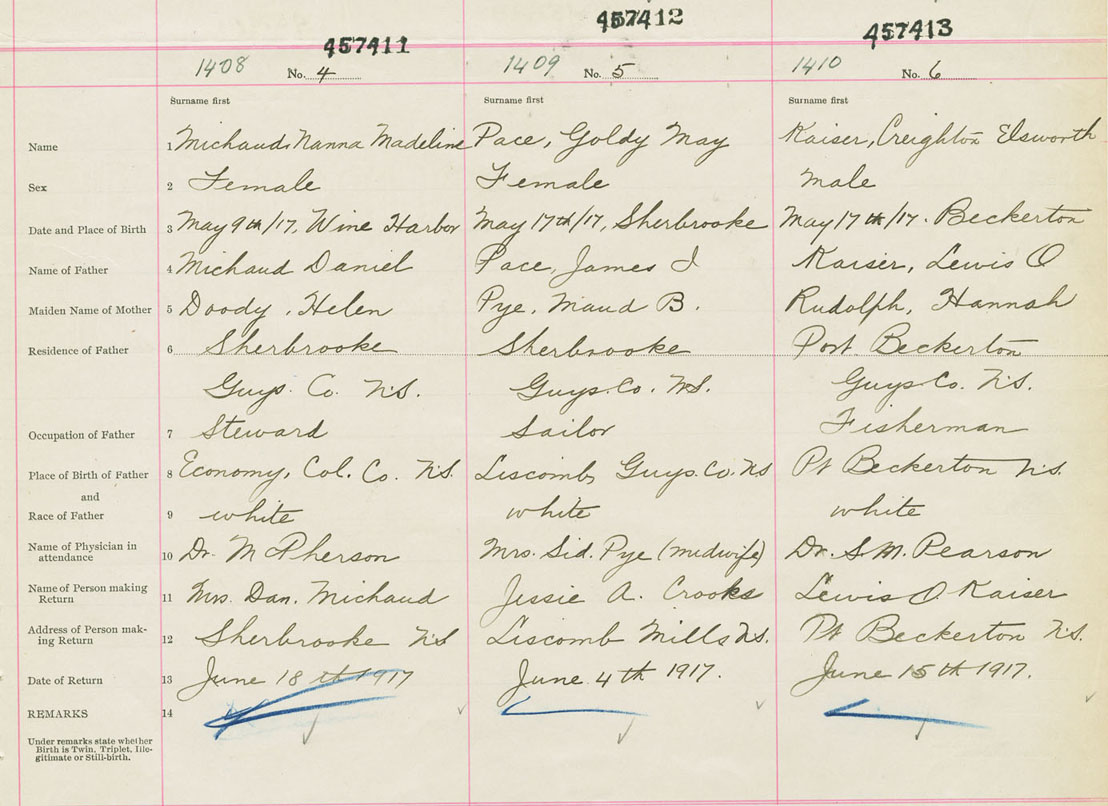 457411 457412 457413
1408 No. 4 1409 No. 5 1410 No. 6
Surname first Surname first Surname first
Name 1 Michaud, Nanna Madeline Pace, Goldy May Kaiser, Creighton Elsworth
Sex 2 Female Female Male
Date and Place of Birth 3 May 9th/17, Wine Harbor May 17th/17, Sherbrooke May 17th/17. Beckerton
Name of Father 4 Michaud Daniel Pace, James J Kaiser, Lewis O
Maiden Name of Mother 5 Doody, Helen Pye, Maud B. Rudolph, Hannah
Residence of Father 6 Sherbrooke Sherbrooke Port Beckerton
Guys. Co. N.S. Guys. Co. N.S. Guys Co. N.S.
Occupation of Father 7 Steward Sailor Fisherman
Place of Birth of Father 8 Economy, Col. Co. N.S. Liscomb, Guys. Co. N.S Pt Beckerton N.S.
and
Race of Father 9 white white white
Name of Physician in
attendance 10 Dr. McPherson Mrs. Sid. Pye (midwife) Dr. S M. Pearson
Name of Person making
Return 11 Mrs. Dan. Michaud Jessie A. Crooks Lewis O Kaiser
Address of Person mak-
ing Return 12 Sherbrooke N.S Liscomb Mills N.S. Pt Beckerton N.S.
Date of Return 13 June 18th 1917 June 4th 1917. June 15th 1917.
REMARKS 14
Under remarks state whether
Birth is Twin, Triplet, Ille-
gitimate or Still-birth.